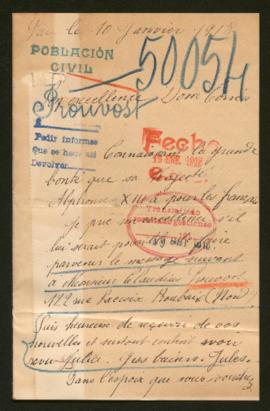 Pau le 10 Janvier 1918
POBLACIÓN
CIVIL
50054
Prouvost
Son excellence Dom
Pedir informes
Que se haga así
Devolver
Fecha
15 ENE. 1918
Connaissant la grande
bonté que sa Majesté
Alphonse XIII a pour les français
je prie son excellence s'il
lui serait possible de faire
parvenir le message suivant
à Monsieur Claudius Prouvost
122 rue Roubaix (Nord)
Suis heureuse de recevoir de vos
nouvelles et surtout content avoir
revu Julia. Gros baisers Jules.
Dans l'espoir que vous voudrez